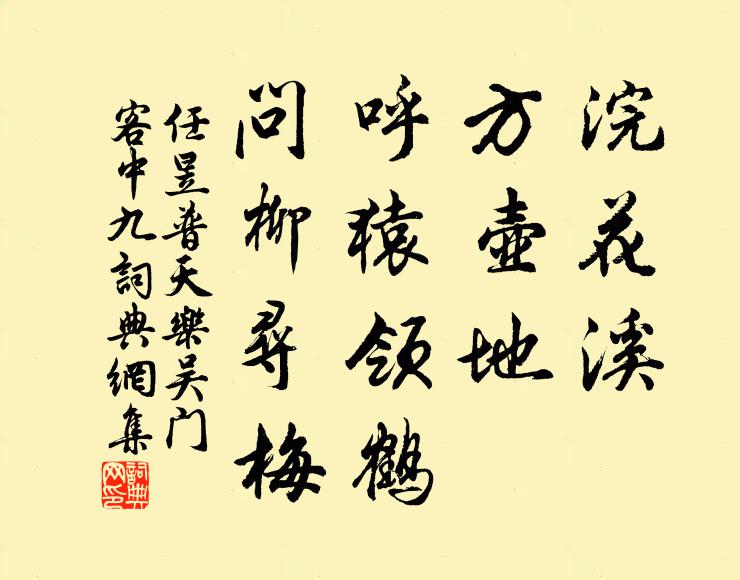 浣花溪
方壺地
呼猿領鶴
問柳尋梅
任昱普天樂吴门
客中九詞典網集
詞典
网印